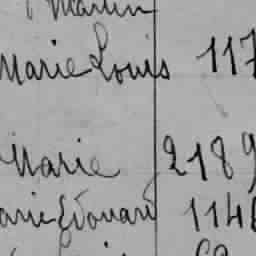 Martin
Marie Louis 117
Marie 2189
Marie Edouard 1146